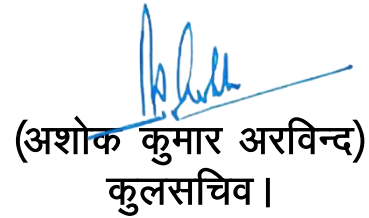 (अशोक कुमार अरविन्द)
कुलसचिव।